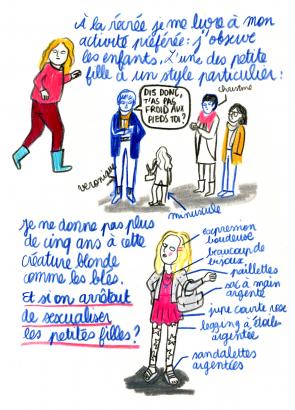 À la récrée je me livre à mon
activité préférée : j'observe
les enfants. L'une des petite
fille a un style particulier :
DIS DONC,
T'AS PAS
FROID AUX
PIEDS TOI ?
christine
véronique
minuscule
Je ne donne pas plus
de cinq ans à cette
créature blonde
comme les blés.
Et si on arrêtait
de sexualiser
les petites filles ?
expression
boudeuse
beaucoup de
bijoux
paillettes
sac à main
argenté
jupe courte rose
legging à étoiles
argentée
sandalettes
argentées